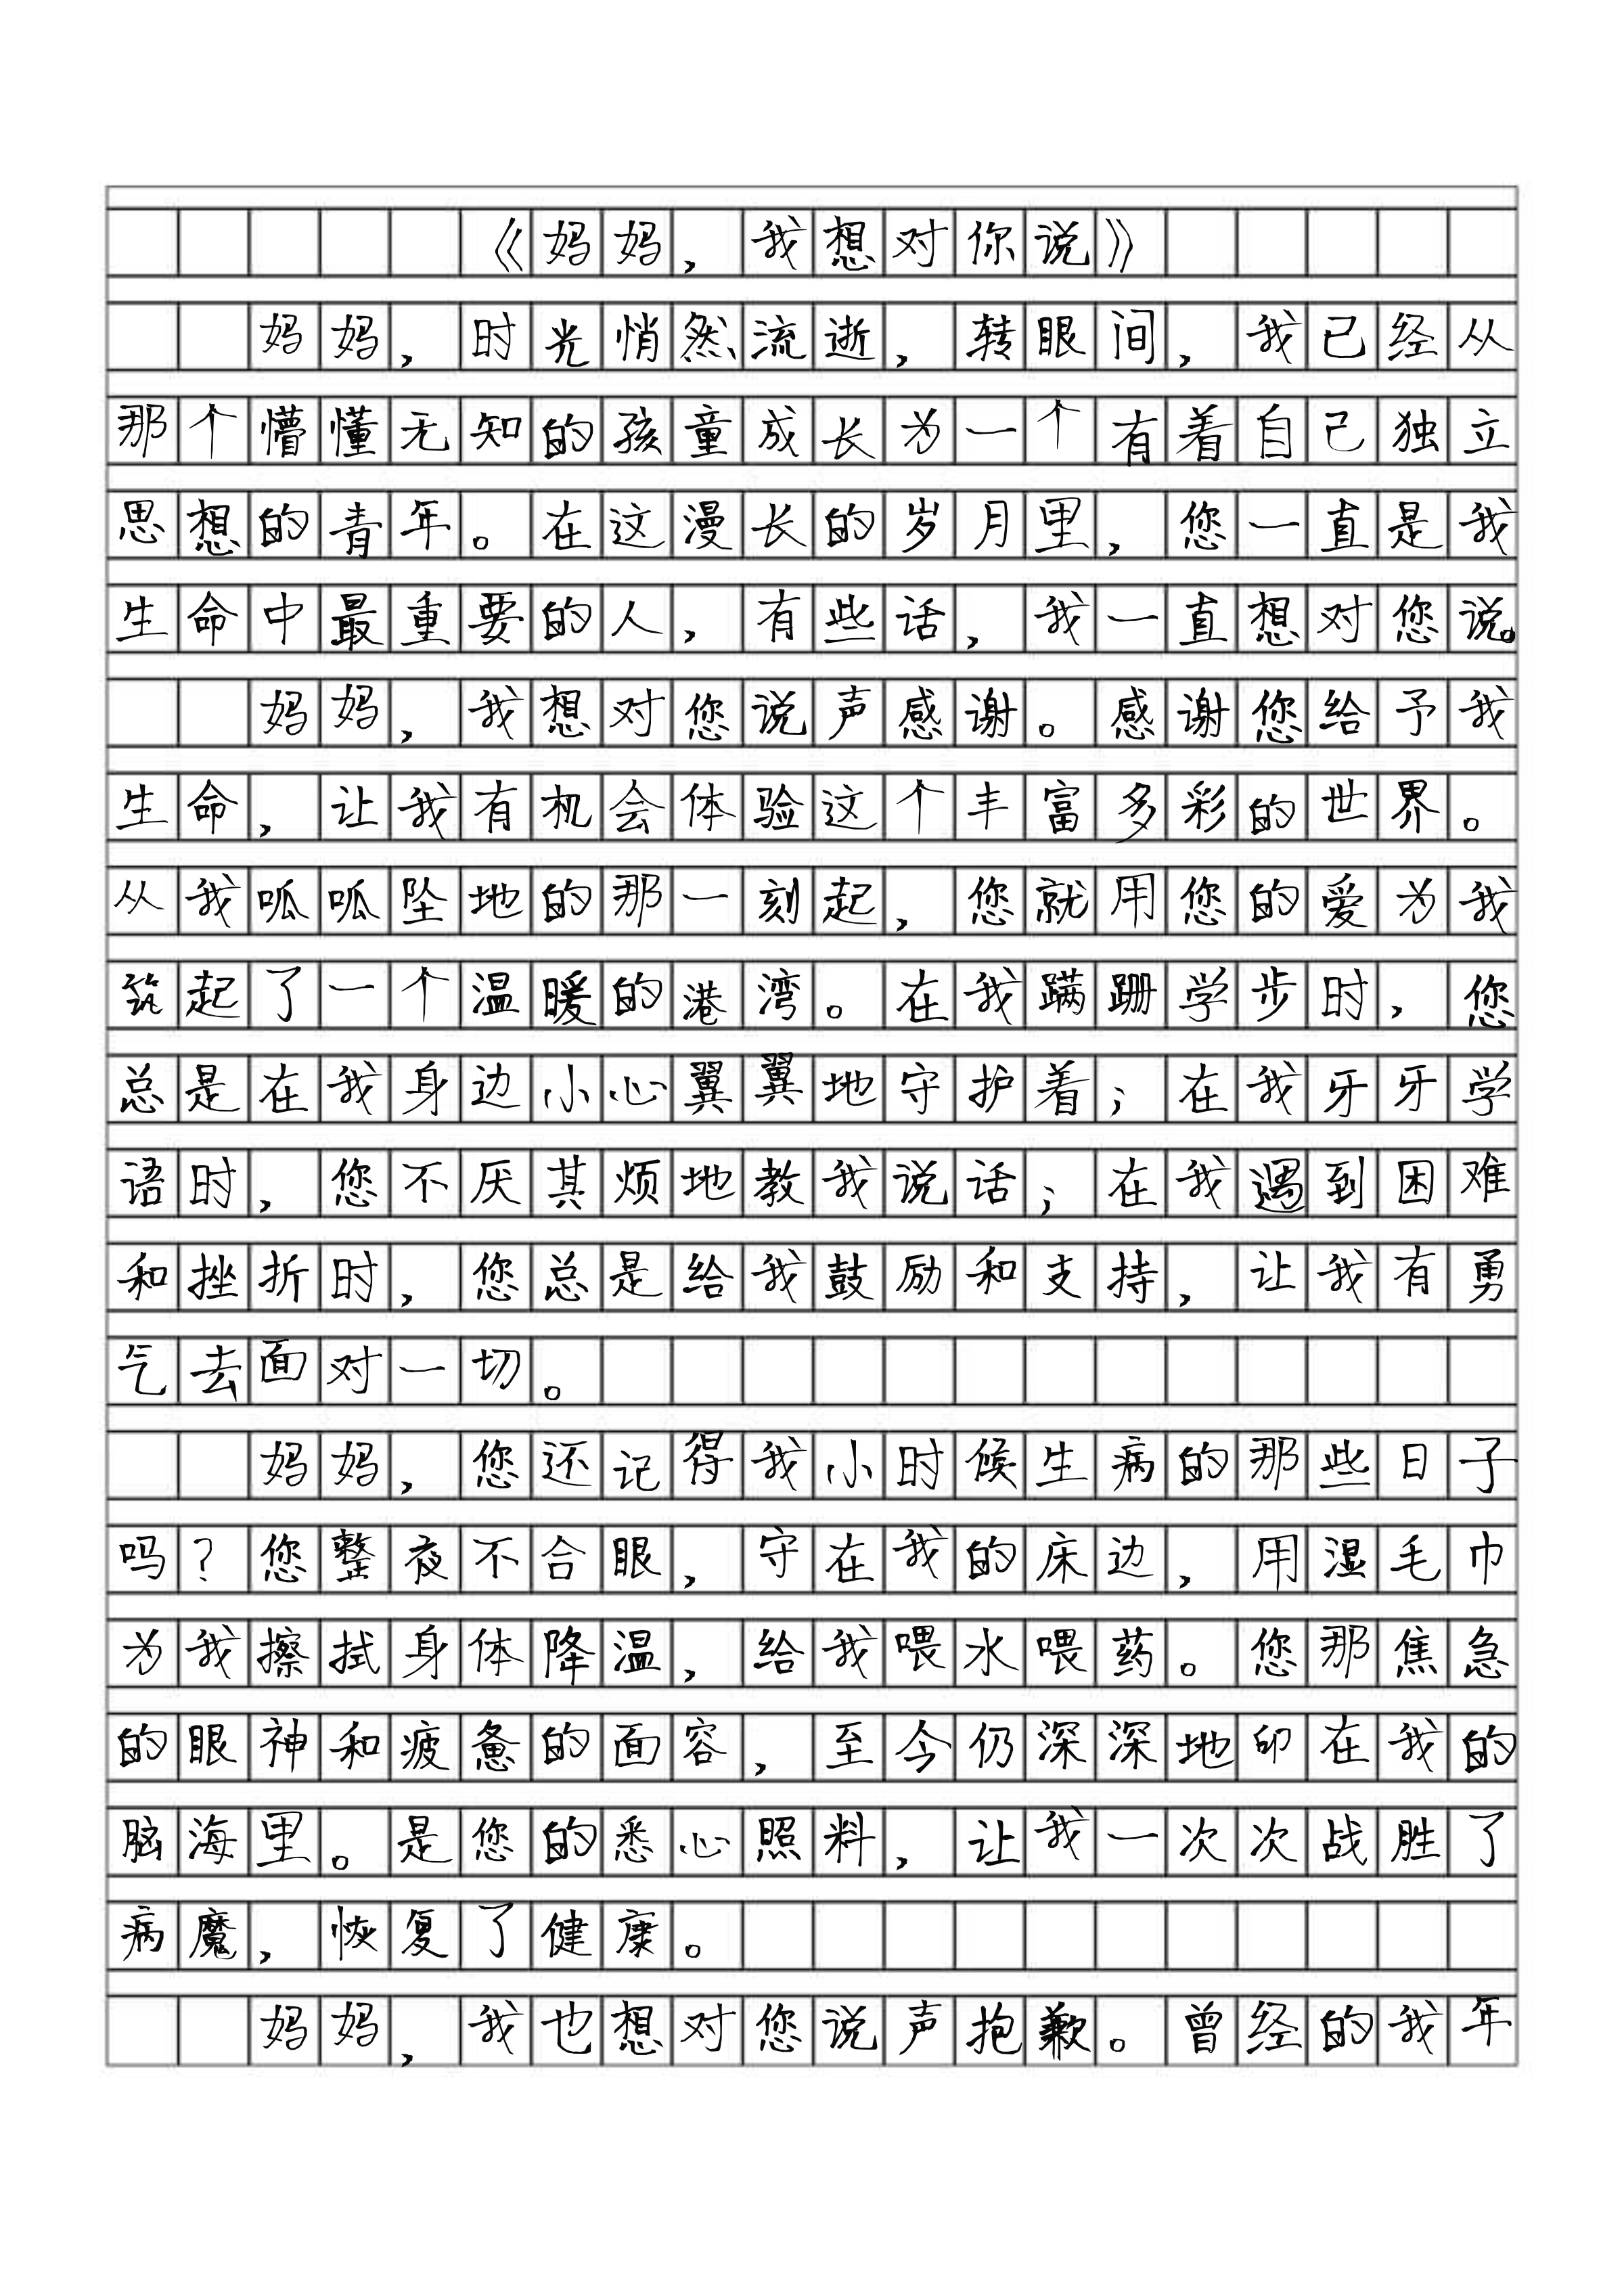 《妈妈，我想对你说》
妈妈，时光悄然流逝，转眼间，我已经从
那个懵懂无知的孩童成长为一个有着自己独立
思想的青年。在这漫长的岁月里，您一直是我
生命中最重要的人，有些话，我一直想对您说。
妈妈，我想对您说声感谢。感谢您给予我
生命，让我有机会体验这个丰富多彩的世界。
从我呱呱坠地的那一刻起，您就用您的爱为我
筑起了一个温暖的港湾。在我蹒跚学步时，您
总是在我身边小心翼翼地守护着；在我牙牙学
语时，您不厌其烦地教我说话；在我遇到困难
和挫折时，您总是给我鼓励和支持，让我有勇
气去面对一切。
妈妈，您还记得我小时候生病的那些日子
吗？您整夜不合眼，守在我的床边，用湿毛巾
为我擦拭身体降温，给我喂水喂药。您那焦急
的眼神和疲惫的面容，至今仍深深地印在我的
脑海里。是您的悉心照料，让我一次次战胜了
病魔，恢复了健康。
妈妈，我也想对您说声抱歉。曾经的我年